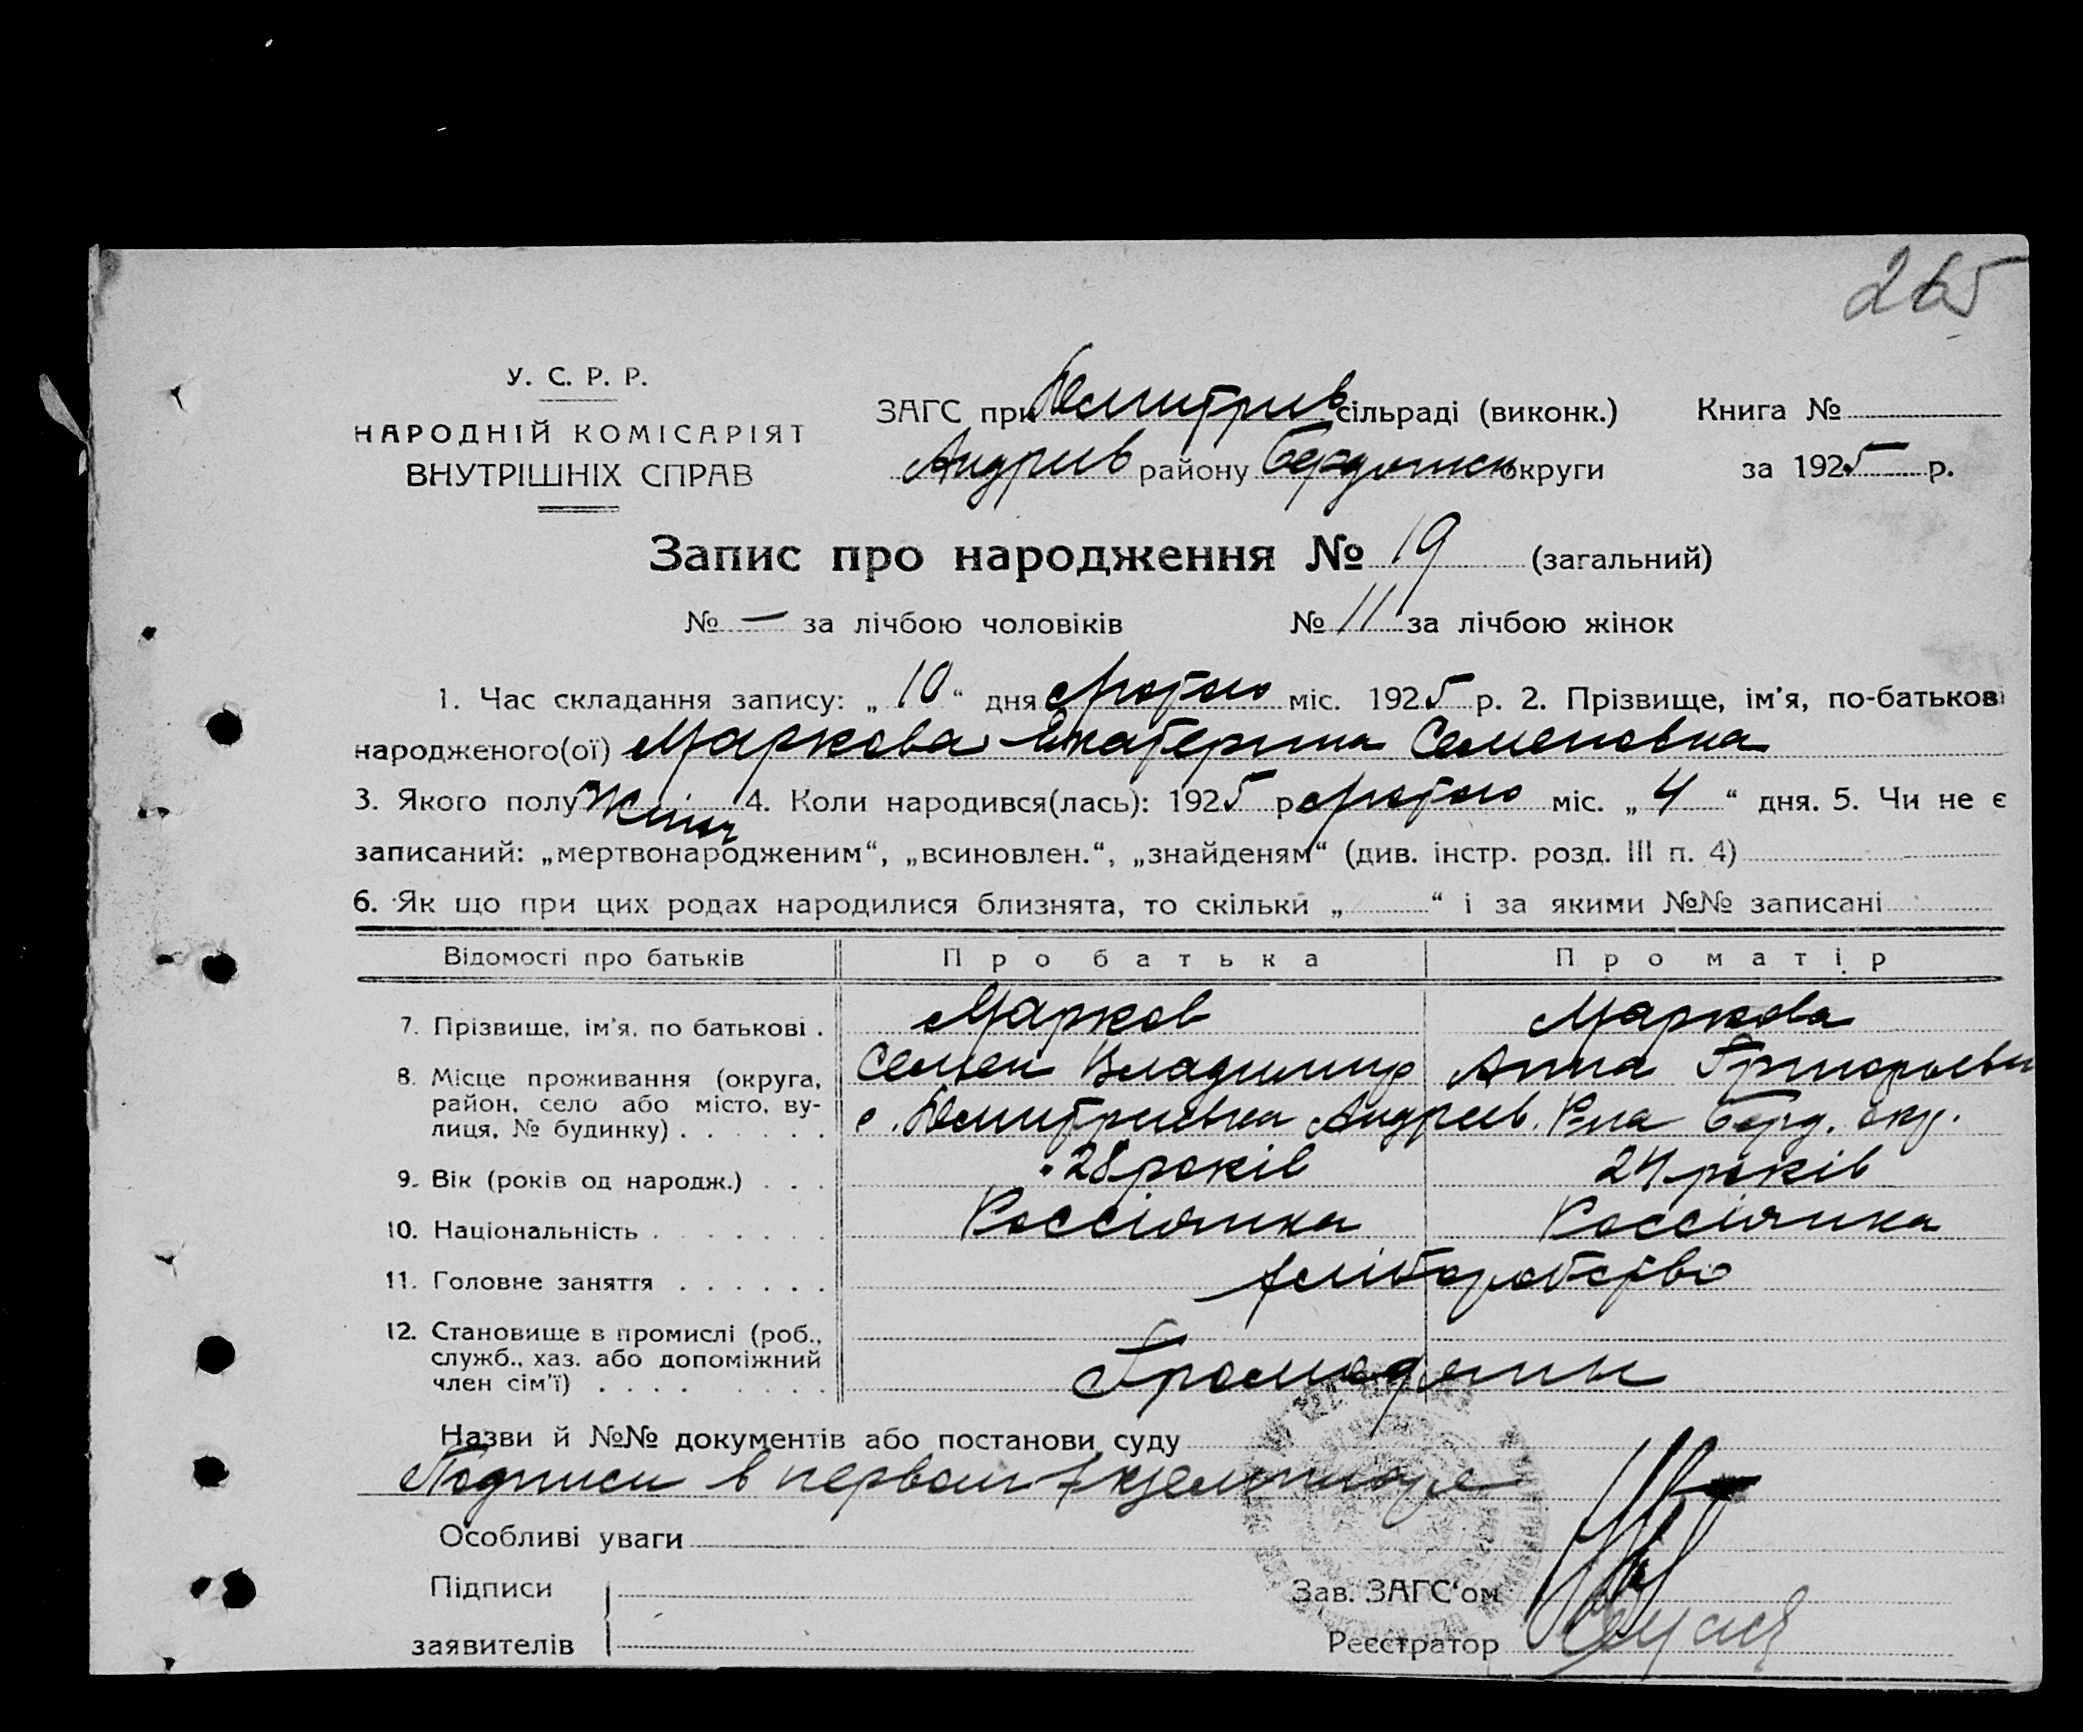 265
У. С. Р. Р.
НАРОДНІЙ КОМІСАРІЯТ
ВНУТРІШНІХ СПРАВ
ЗАГС при Дмитрив сільраді (виконк.) Книга №
Андреев району Бердянськ округи за 1925 р.
Запис про народження № 19 (загальний)
№ — за лічбою чоловіків № 11 за лічбою жінок
1. Час складання запису: „ 10 “ дня лютого міс. 1925 р. 2. Прізвище, ім'я, по-батькові
народженого(ої) Маркова Екатерина Семеновна
3. Якого полу жіноч 4. Коли народився(лась): 1925 р лютого міс. „ 4 “ дня. 5. Чи не є
записаний: „мертвонародженим“, „всиновлен.“, „знайденям“ (див. інстр. розд. III п. 4)
6. Як що при цих родах народилися близнята, то скільки „ “ і за якими №№ записані
Відомості про батьків Про батька Про матір
7. Прізвище, ім'я, по батькові . Марков Маркова
8. Місце проживання (округа, Семен Владимир Анна Григорьевн
район, село або місто, ву- с. Дмитриевка Андреев. Р-на Берд. окр.
лиця, № будинку) . . . . . .
9. Вік (років од народж.) . . . 28 років 24 років
10. Національність . . . . . . . Россіянка Россіянка
11. Головне заняття . . . . . . хліборобство
12. Становище в промислі (роб.,
служб., хаз. або допоміжний Громадянин
член сім'ї) . . . . . . . .
Назви й №№ документів або постанови суду
Подписи в первом экземпляре
Особливі уваги
Підписи Зав. ЗАГС'ом
заявителів Реєстратор